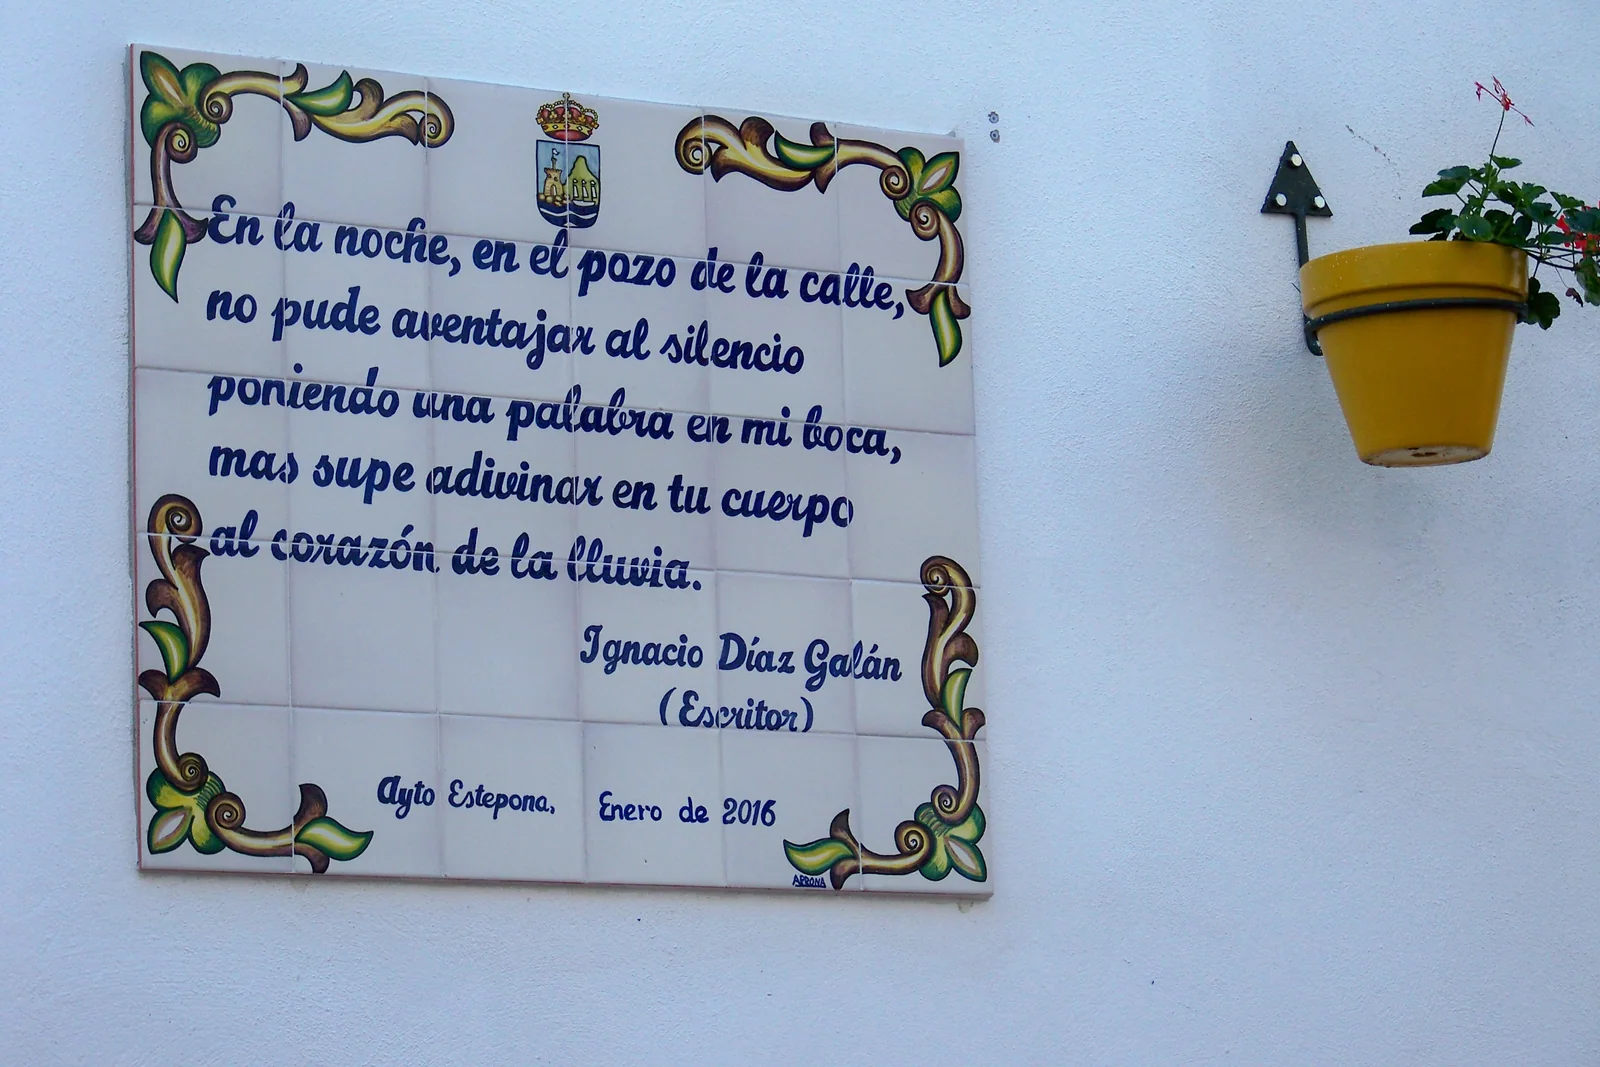 En la noche, en el pozo de la calle,
no pude aventajar al silencio
poniendo una palabra en mi boca,
mas supe adivinar en tu cuerpo
al corazón de la lluvia.
Ignacio Díaz Galán
(Escritor)
Ayto Estepona, Enero de 2016